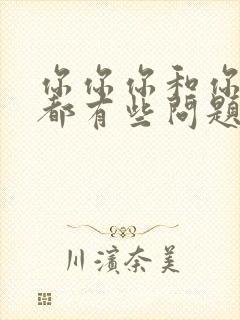 你你你和你
都有些问题
川濱奈美